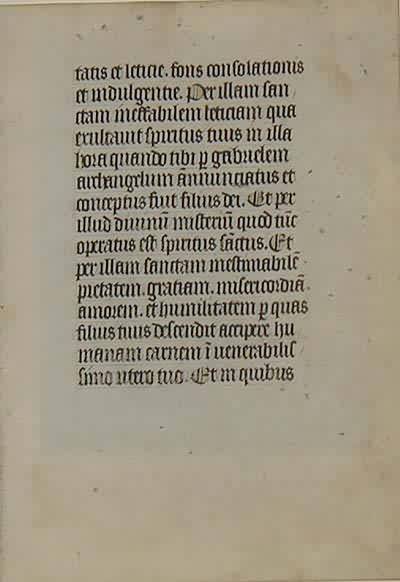 tatis et leticie. fons consolationis
et indulgentie. Per illam san
ctam ineffabilem leticiam qua
exultauit spiritus tuus in illa
hora quando tibi ꝑ gabrielem
archangelum ānnunciatus et
conceptus fuit filius dei. Et per
illud diuinū misteriū quod tūc
operatus est spiritus sāctus. Et
per illam sanctam inestimabilē
pietatem. gratiam. misericordiā.
amorem. et humilitatem ꝑ quas
filius tuus descendit accipere hu
manam carnem ī uenerabilis
simo utero tuo. Et in quibus